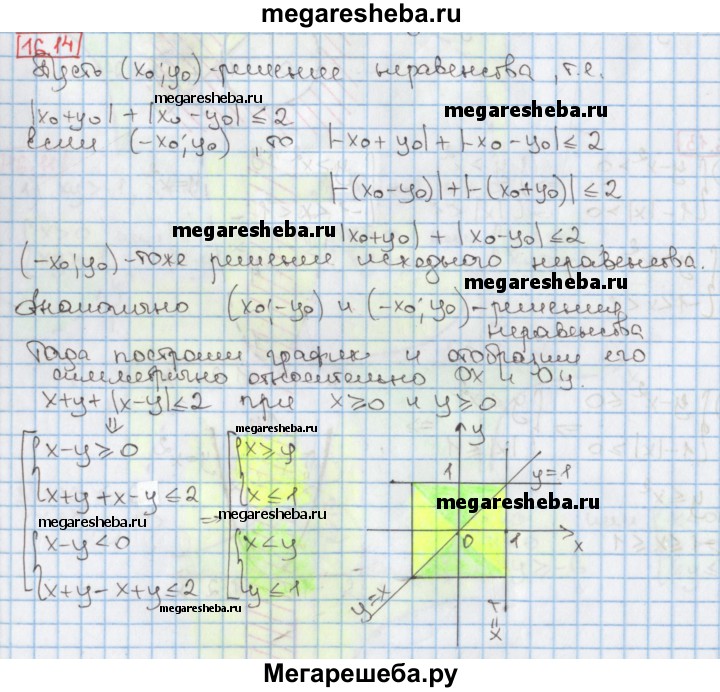 megaresheba.ru
16.14
Пусть (x₀; y₀) - решение неравенства, т.е.
megaresheba.ru
|x₀+y₀| + |x₀-y₀| ≤ 2
megaresheba.ru
если (-x₀; y₀), то |-x₀+y₀| + |-x₀-y₀| ≤ 2
|-(x₀-y₀)| + |-(x₀+y₀)| ≤ 2
megaresheba.ru
|x₀+y₀| + |x₀-y₀| ≤ 2,
(-x₀; y₀) - тоже решение исходного неравенства.
megaresheba.ru
Аналогично (x₀; -y₀) и (-x₀; y₀) - решения
неравенства
Тогда построим график и отобразим его
симметрично относительно Ox и Oy.
x+y+|x-y| ≤ 2 при x≥0 и y≥0
⇓ megaresheba.ru
x-y≥0 x≥y
x+y+x-y≤2 x≤1
megaresheba.ru ⇒ megaresheba.ru
x-y<0 x<y
x+y-x+y≤2 y≤1
megaresheba.ru
y
1 y=1
megaresheba.ru
0 1 x
y=x
x=1
megaresheba.ru
Мегарешеба.ру